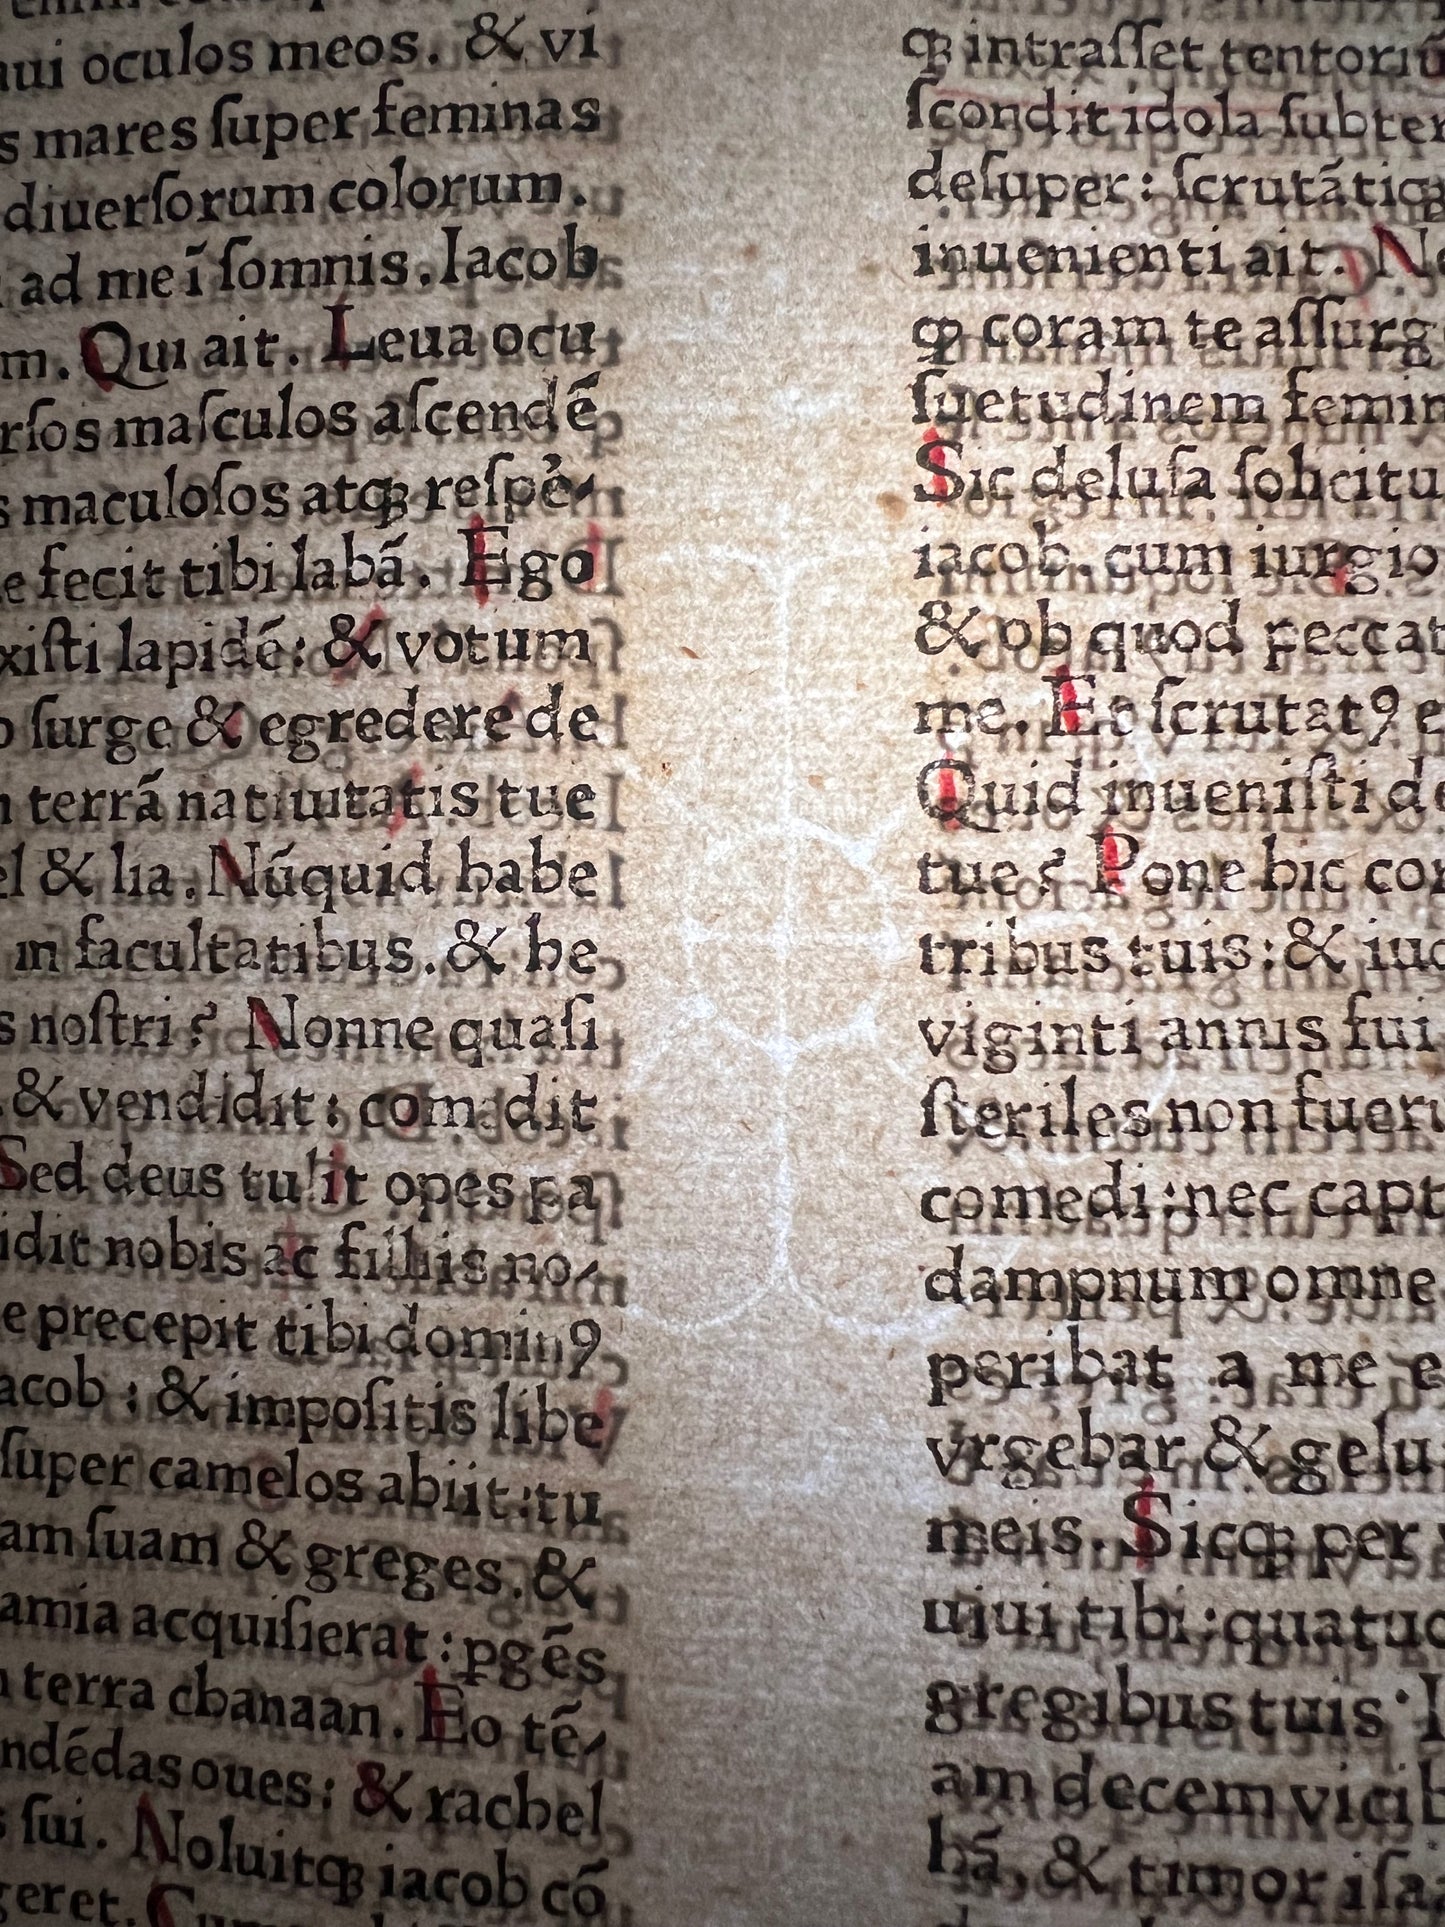 oculos meos. & vi
mares ſuper feminas
diuerſorum colorum.
ad me ī ſomnis. Iacob
m. Qui ait. Leua ocu
rſos maſculos aſcendē
maculoſos atqꝫ reſpē
e fecit tibi labā. Ego
xiſti lapidē: & votum
ſurge & egredere de
terrā natiuitatis tue
el & lia. Nūquid habe
in facultatibus. & he
s noſtri? Nonne quaſi
& vendidit: comedit
Sed deus tulit opes pa
idit nobis ac filiis no
e precepit tibi dominꝰ
acob: & impoſitis libe
ſuper camelos abiit: tu
am ſuam & greges. &
amia acquiſierat: pgēs
terra chanaan. Eo tē
ndēdas oues: & rachel
ſui. Noluitqꝫ iacob cō
geret.
qꝫ intraſſet tentoriū
ſcondit idola ſubter
deſuper: ſcrutātiqꝫ
inuenienti ait. Ne
ꝙ coram te aſſurg
ſuetudinem femin
Sic deluſa ſolicitu
iacob. cum iurgio
& ob quod peccat
me. Et ſcrutatꝰ e
Quid inueniſti de
tue? Pone hic cor
tribus tuis: & iud
viginti annis fui
ſteriles non fuerū
comedi: nec capt
dampnum omne
peribat a me e
vrgebar & gelu
meis. Sicqꝫ per
uiui tibi: quatuo
gregibus tuis. I
am decem vicib
bā. & timor iſaa